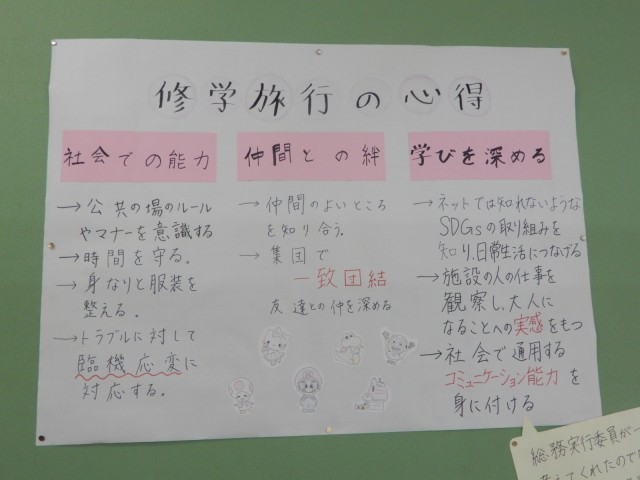 修学旅行の心得
社会での能力
→公共の場のルール
やマナーを意識する
→時間を守る.
→身なりと服装を
整える.
→トラブルに対して
臨機応変に
対応する.
仲間との絆
→仲間のよいところ
を知り合う.
→集団で
一致団結
友達との仲を深める
学びを深める
→ネットでは知れないような
SDGsの取り組みを
知り,日常生活につなげる
→施設の人の仕事を
観察し,大人に
なることへの実感をもつ
→社会で通用する
コミュニケーション能力を
身に付ける
総務実行委員が一
考えてくれたので